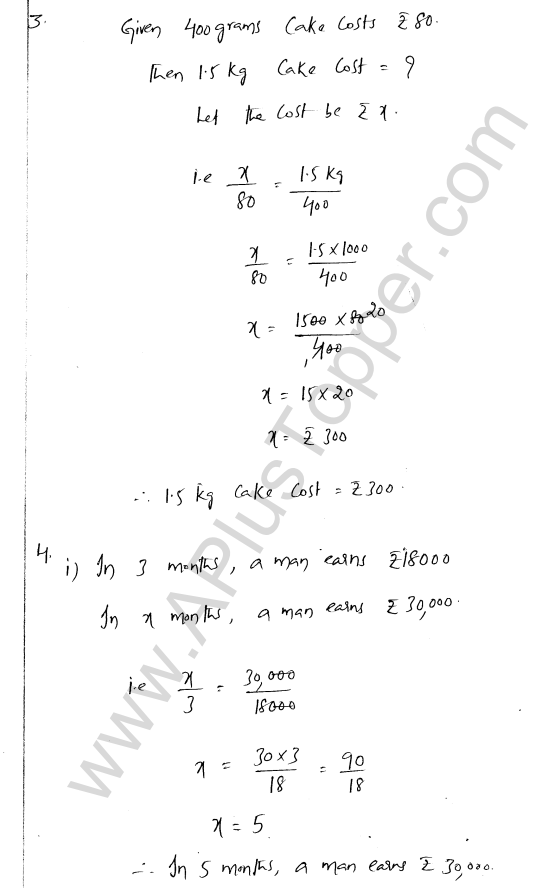 3. Given 400 grams Cake Costs ₹ 80.
Then 1.5 kg Cake Cost = ?
Let the Cost be ₹ x.
i.e x/80 = 1.5 kg/400
x/80 = 1.5 × 1000/400
x = 1500 × 80 20/1 400
x = 15 × 20
x = ₹ 300
∴ 1.5 kg Cake Cost = ₹ 300.
4. i) In 3 months, a man earns ₹ 18000
In x months, a man earns ₹ 30,000.
i.e x/3 = 30,000/18000
x = 30 × 3/18 = 90/18
x = 5
∴ In 5 months, a man earns ₹ 30,000.
www.APlusTopper.com